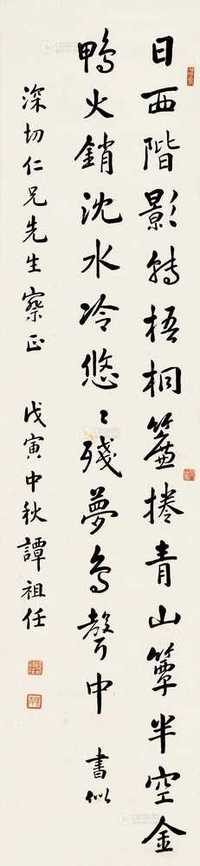 日西階影轉梧桐簾捲青山簟半空金
鴨火銷沈水冷悠〻殘夢鳥聲中 書似
深切仁兄先生察正 戊寅中秋譚祖任